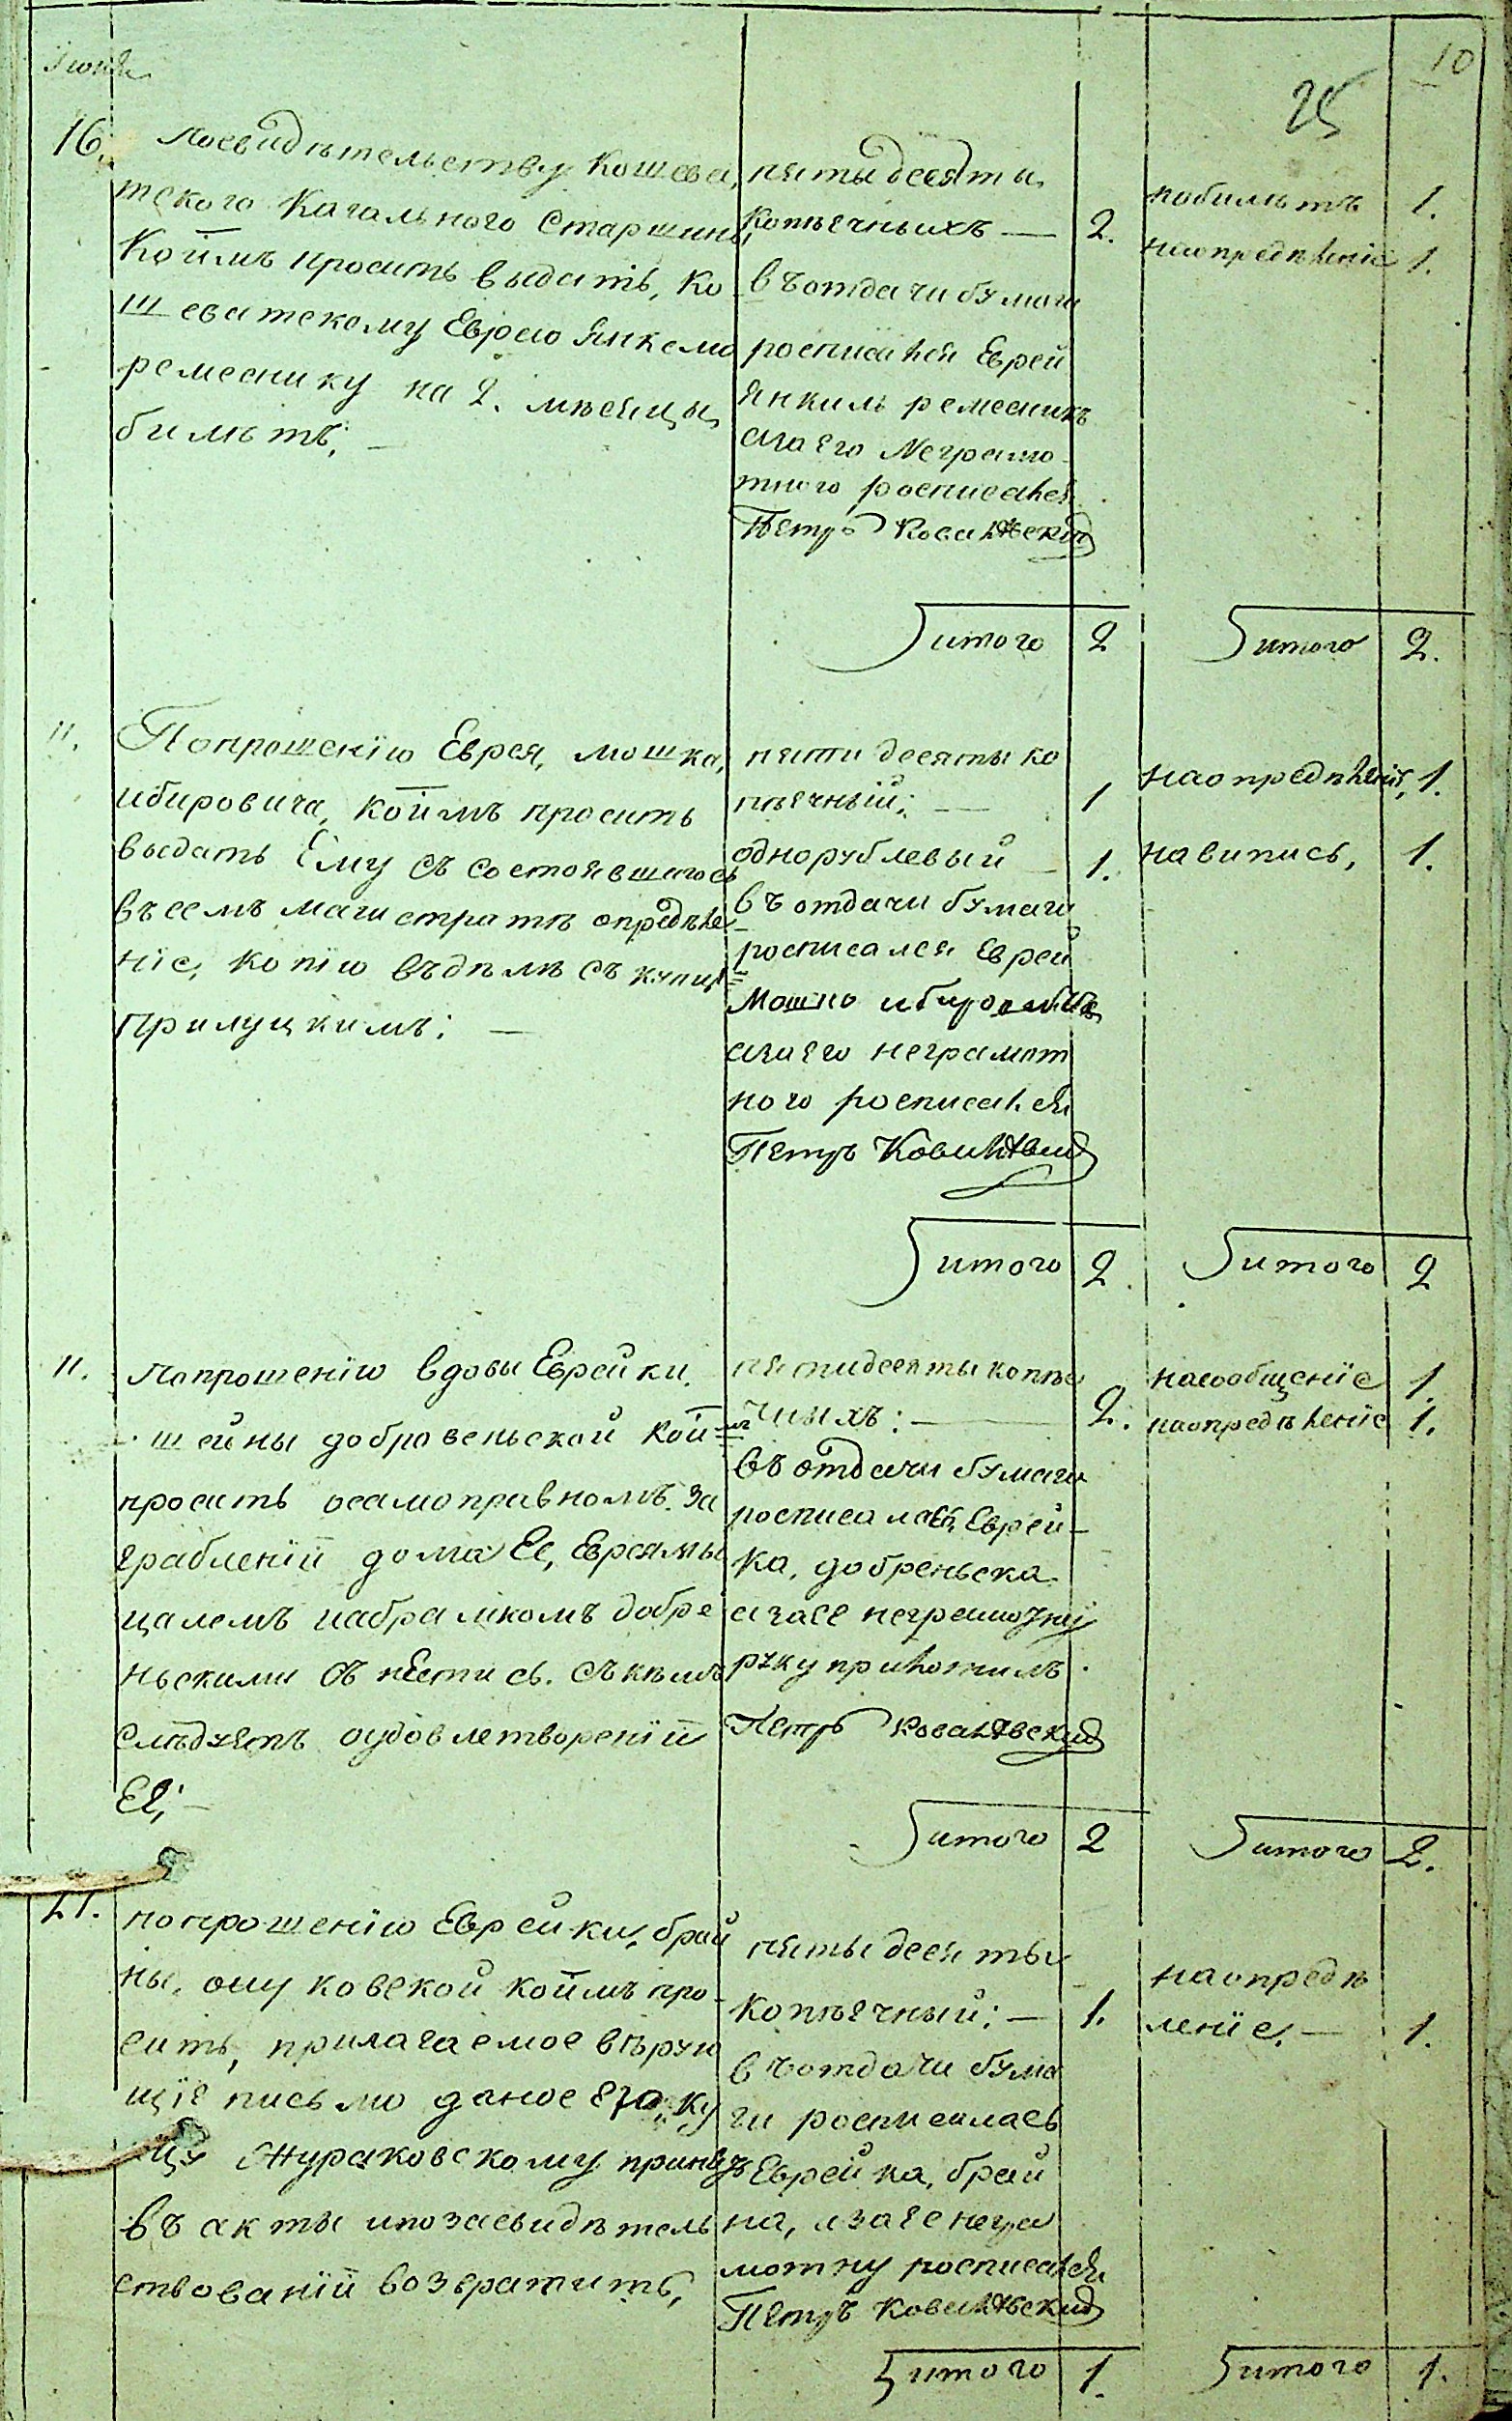 Июня
10
25
16.
Посвидѣтельству Кошева,
тского Кагального Старшины,
Коимъ просить выдать, Ко
шеватскому Еврею Янкелю
ремеснику на 2. мѣсяцы,
билѣтъ; —
пяты десяты,
копѣечныихъ — 2.
въ отдачи бумаги
росписался Еврей
Янкиль ремесникъ
а за Его Неграмо
тного росписался
Петръ Ковалѣвский
побилѣтъ 1.
наопредѣленіе 1.
итого 2
итого 2.
11.
Попрошенію Еврея, мошка,
ибировича, коимъ просить
выдать Ему съ состоявшагось
въ семъ магистратѣ опредѣле
ніе, копію въ дѣлѣ съ купц
прилуцкимъ; —
пяти десяты ко
пѣечный; — 1
однорублевый 1.
въ отдачи бумаги
росписался Еврей
Мошко ибировичъ
а за его неграмот
ного росписался
Петръ Ковалѣвский
наопредѣленіе, 1.
навипись, 1.
итого 2
итого 2
11.
Попрошенію вдовы Еврейки
шейны добровеньской кои=мъ
просить осамоправномъ за
граблении дома Ее, Евреямы
цалемъ иабрамкомъ добре
ньскими
слѣдуетъ оудовлетворении
Ее; —
пятидесяты копѣе
чныхъ; — 2.
въ отдачи бумаги
росписалась Еврей-
ка, добреньска
а за ее неграмотну
руку приложилъ
Петръ Ковалѣвский
насообщеніе 1.
наопредѣленіе 1.
итого 2
итого 2.
21.
попрошенію Еврейки, брай
ны, ошуковской коимъ про-
сить, прилагаемое вѣрую
щіе письмо даное Его, ку
цу Жураковскому принять
въ акты и позасвидѣтель
ствовании возвратить,
пяты десяты
копѣечный; — 1.
въ отдачи бума
ги росписилась
Еврейка, брай
на, а за Ее негра
мотну росписался
Петръ Ковалѣвский
наопредѣ
леніе, — 1.
итого 1.
итого 1.